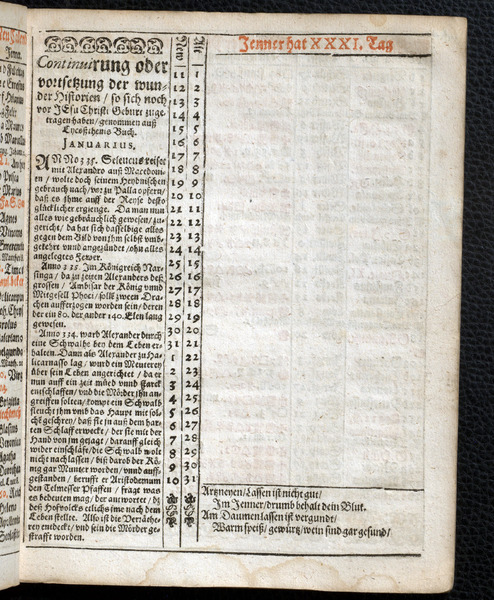 Jenner hat XXXI. Tag
Continuirung oder
vortsetzung der wun-
der Historien / so sich noch
vor JEsu Christi Geburt zuge-
tragen haben / genommen auß
Lycosthenis Buch.
JANUARIUS.
ANNO 335. Seleucus reiset
mit Alexandro auß Macedoni-
en / wolte doch seinem Heydnischen
gebrauch nach / vor zu Palla opfern /
daß es ihme auff der Reyse desto
glücklicher ergienge. Da man nun
alles wie gebräuchlich gewesen / zu-
gericht / da hat sich dasselbige alles
gegen dem Bild von ihm selbst umb-
gekehrt unnd angezündet / ohn alles
angelegtes Fewer.
Anno 335. Im Königreich Nar-
singa / da zu zeiten Alexanders deß
grossen / Ambisar der König unnd
Mitgesell Phoci / sollt zween Dra-
chen aufferzogen worden sein / deren
der ein 80. der ander 140. Elen lang
gewesen.
Anno 334. ward Alexander durch
eine Schwalbe bey dem Leben er-
halten. Dann als Alexander zu Ha-
licarnasso lag / wurd ein Meuterey
über sein Leben angerichtet / da er
nun auff ein zeit müed unnd starck
entschlaffen / und die Mörder ihn an-
greiffen solten / kompt ein Schwalb
fleucht ihm umb das Haupt mit sol-
chē geschrey / daß sie ja auß dem har-
ten Schlaff erweckt / der sie mit der
Hand von jm gejagt / darauff gleich
wider einschläfft / die Schwalb wolt
nicht nachlassen / biß darob der Kö-
nig gar Munter worden / unnd auff-
gestanden / berufft er Aristodemum
den Telmesser Pfaffen / fragt was
es bedeuten mag / der antwortet / dz
deß Hofvolcks etlichs ime nach dem
Leben stellet. Also ist die Verräthe-
rey entdeckt / und sein die Mörder ge-
straffe worden.
New Alt
11 1
12 2
13 3
14 4
15 5
16 6
17 7
18 8
19 9
20 10
21 11
22 12
23 13
24 14
25 15
26 16
27 17
28 18
29 19
30 20
31 21
1 22
2 23
3 24
4 25
5 26
6 27
7 28
8 29
9 30
10 31
Artzneyen / Lassen ist nicht gut /
Im Jenner / drumb behalt dein Blut.
Am Daumen lassen ist vergundt /
Warm speiß / gewürtz / wein sind gar gesund /
Jenner.
Agnes
Vincens
Brigitta
Blasius
Veronica
Agatha
Dorothea
Helena